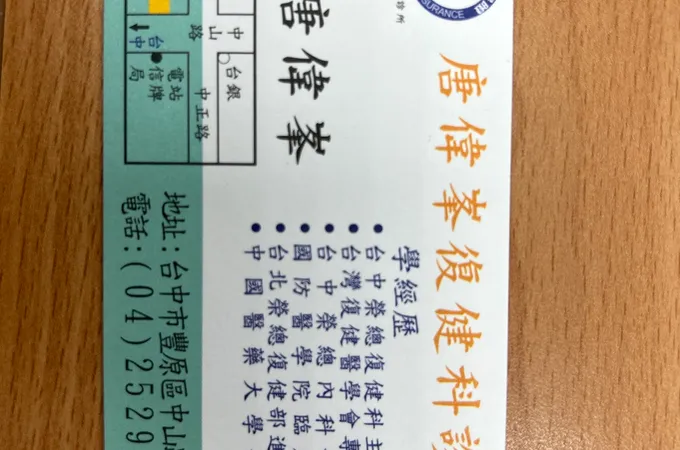 SURANCE
診所
唐偉峯復健科診
唐偉峯
學經歷
• 台中榮總復健科主
• 台灣復健醫學會專
• 台中榮總內科
• 國防醫學院臨
• 台北榮總復健部進
• 中國醫藥大學
中山路
台銀
中正路
台中
電信局
站牌
地址:台中市豐原區中山
電話:(04)2529